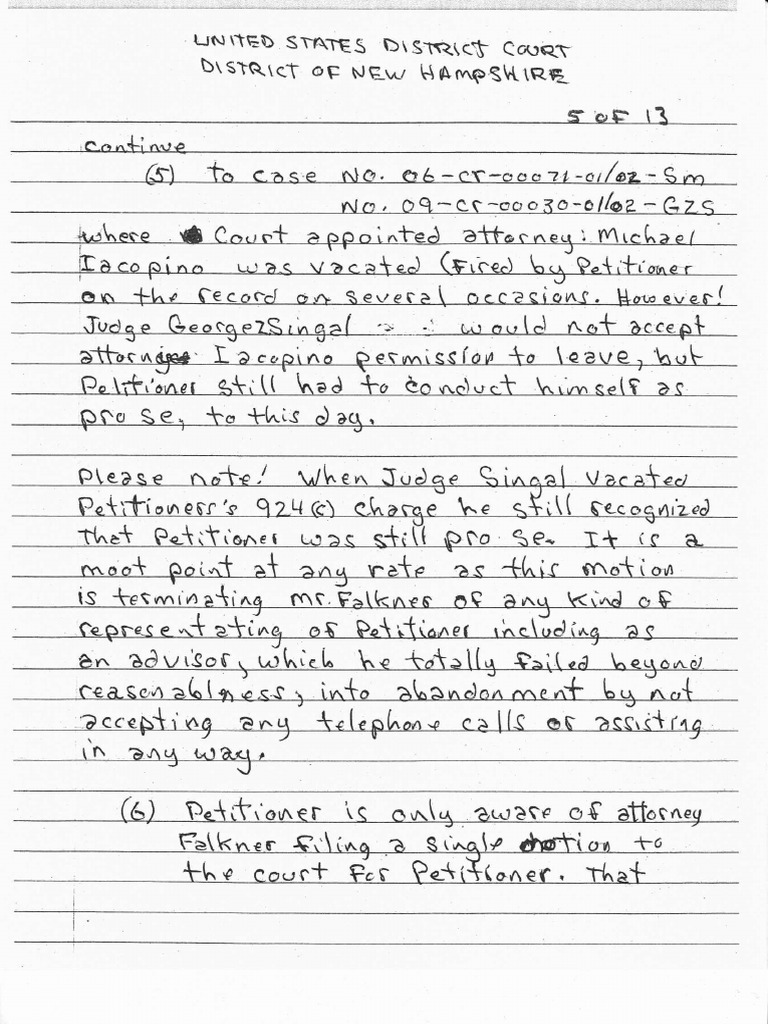 UNITED STATES DISTRICT COURT
DISTRICT OF NEW HAMPSHIRE
5 OF 13
continue
(5) to case NO. 06-cr-00071-01/02-Sm
NO. 09-cr-00030-01/02-GZS
where Court appointed attorney: Michael
Iacopino was vacated (fired by Petitioner
on the record on several occasions. However!
Judge GeorgeZSingal would not accept
attorney Iacopino permission to leave, but
Petitioner still had to conduct himself as
pro se, to this day.
Please note! When Judge Singal vacated
Petitioners's 924(c) charge he still recognized
that Petitioner was still pro se. It is a
moot point at any rate as this motion
is terminating Mr. Falkner of any kind of
representating of Petitioner including as
an advisor, which he totally failed beyond
reasonablness, into abandonment by not
accepting any telephone calls or assisting
in any way.
(6) Petitioner is only aware of attorney
Falkner filing a single motion to
the court for Petitioner. That